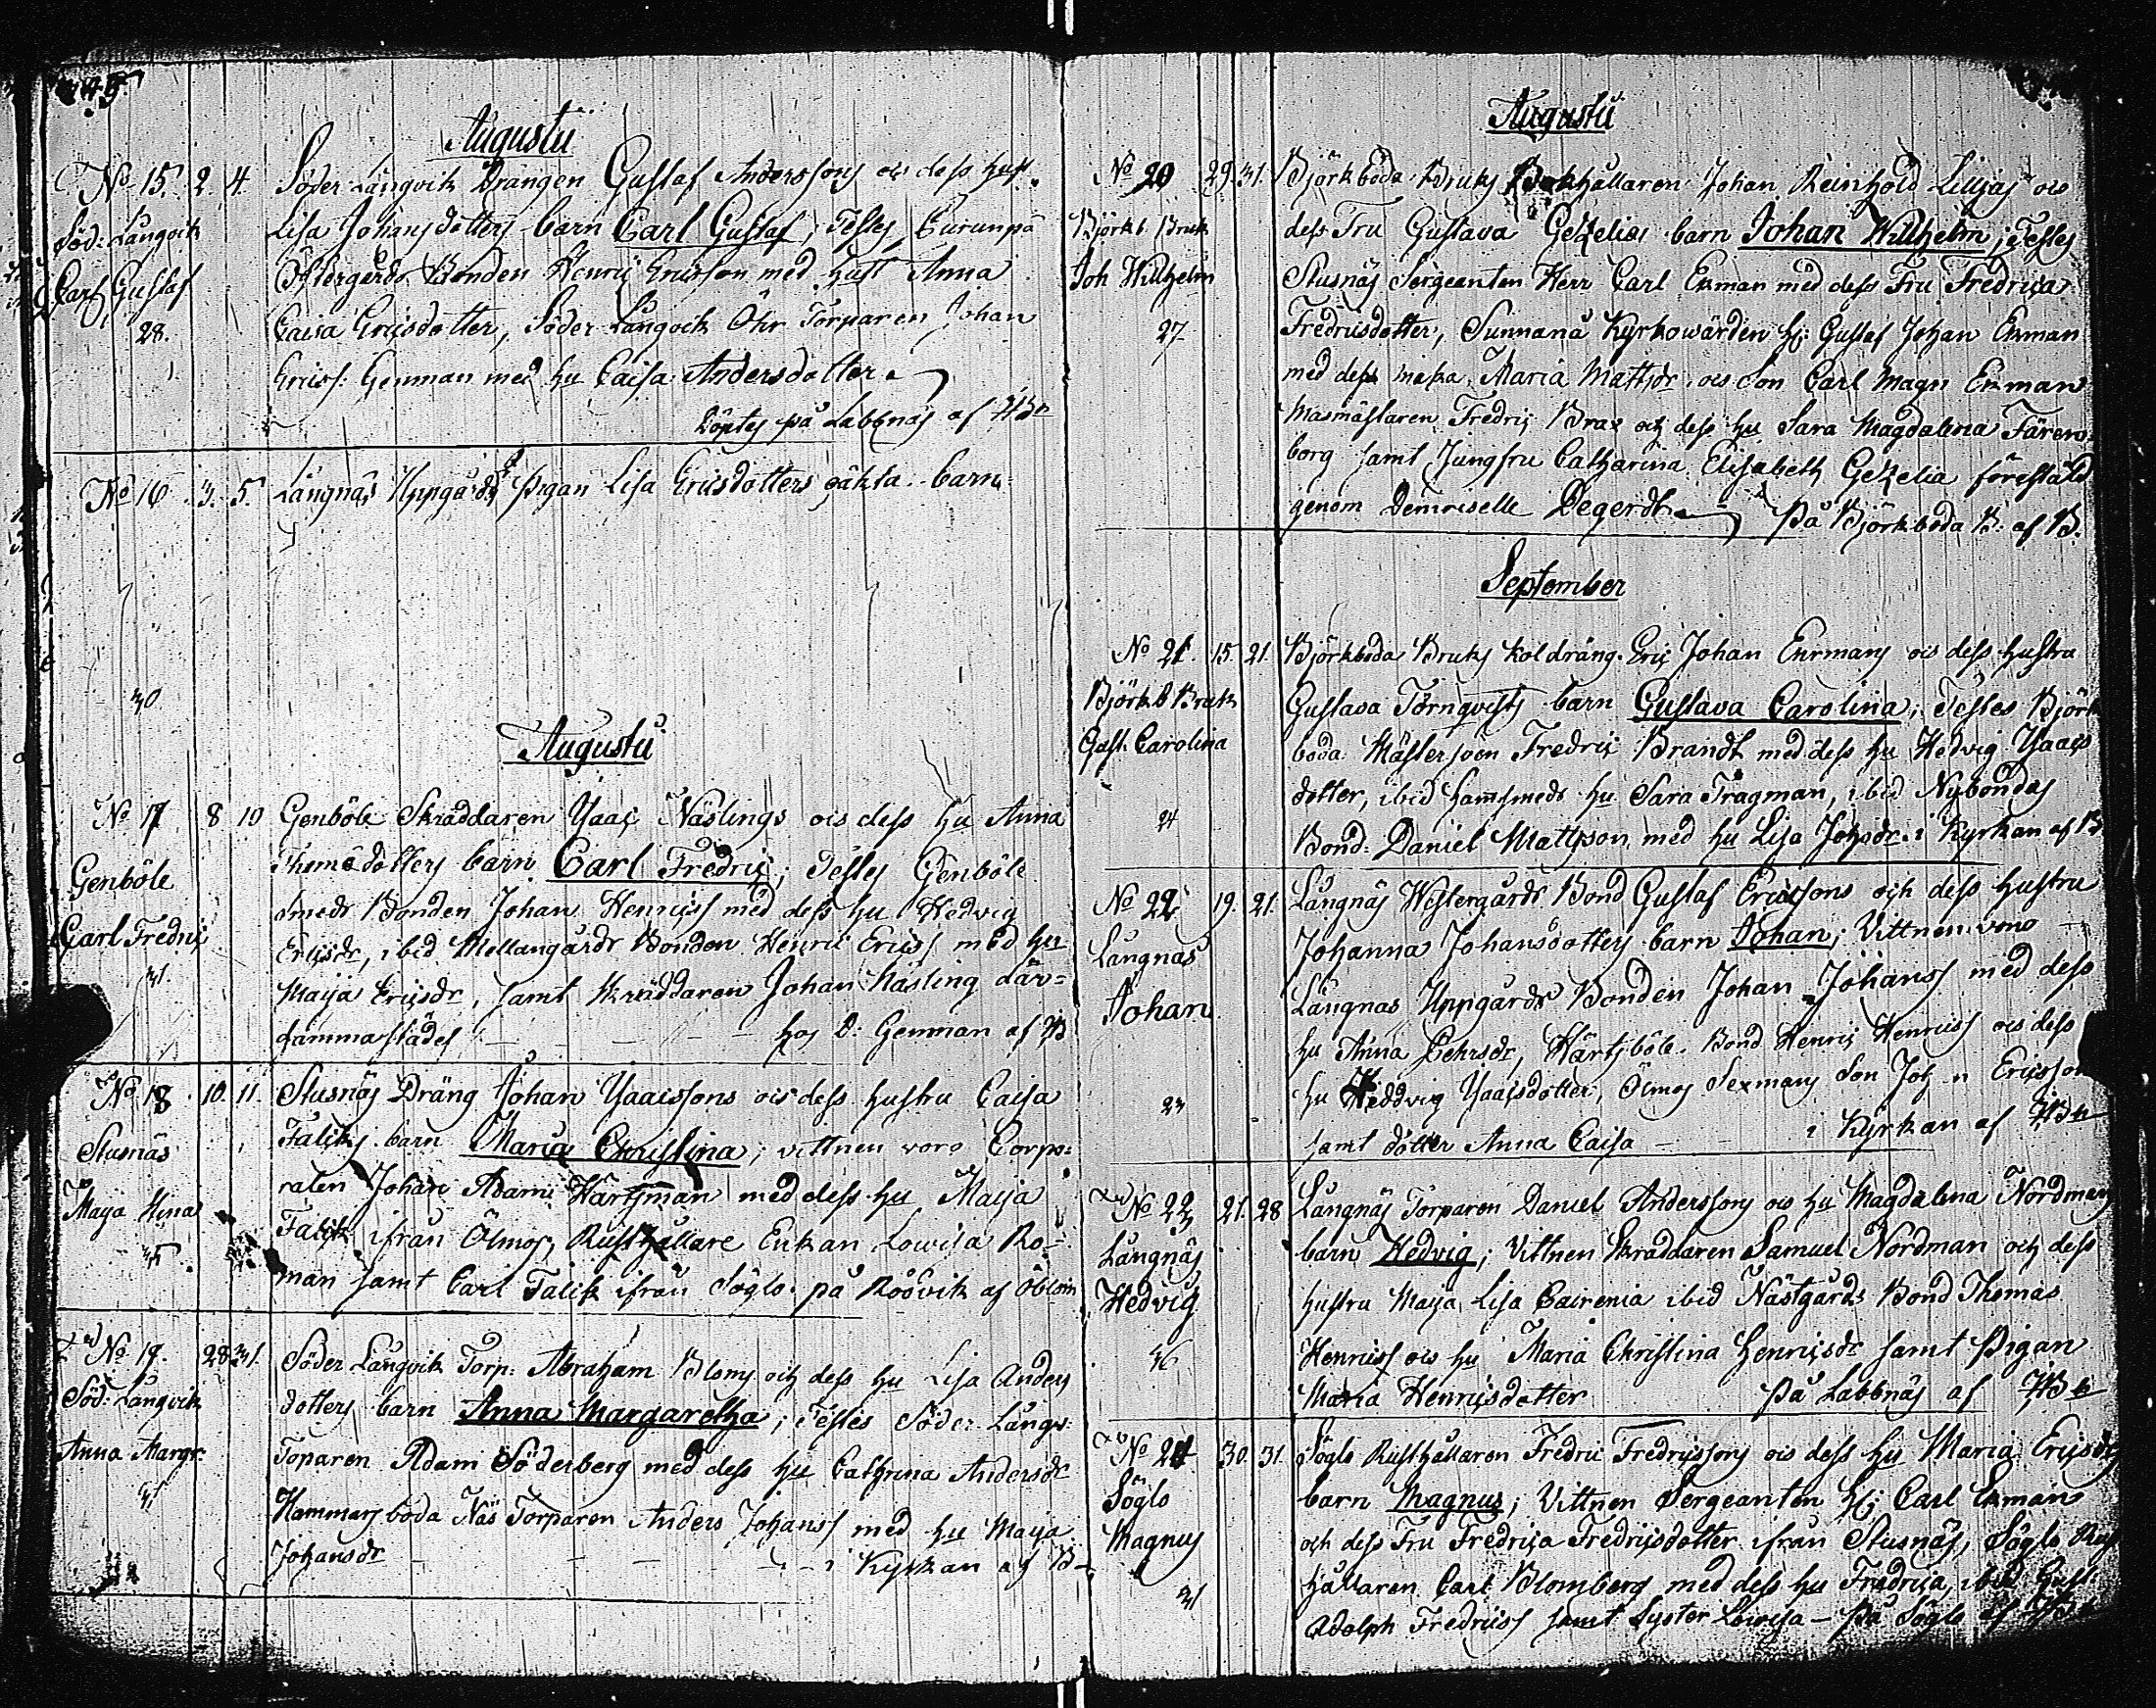 Augustii
No 15. 2. 4. Söder Långvik Drängen Gustaf Anderssons och dess hust.
Söd: Långvik Lisa Johansdotters barn Carl Gustaf; Testes
Carl Gustaf Östergårds Bonden Henric Ericsson med hust Anna
28. Caisa Ericsdotter, Söder Långvik Öhr Torparen Johan
Ericss: Genman med hu Caisa Andersdotter.
Döptes på Labbnäs af
No 16. 3. 5. Långnäs Uppgårds Pigan Lisa Ericsdotters oäkta barn
30
Augustii
No 17 8 10 Genböle Skräddaren Isaac Näslings och dess hu Anna
Genböle Thomædotters barn Carl Fredric; Testes Genböle
Smeds Bonden Johan Henricss med dess hu Hedvig
Carl Fredric Ericsdr, ibid Mellangårds Bonden Henric Ericss med hu
31. Maija Ericsdr, samt Skräddaren Johan Näsling där-
sammastädes - - - hos D: Genman af B
No 18. 10. 11. Stusnäs Dräng Johan Isaacssons och dess hustru Caisa
Stusnäs Faliks barn Maria Christina; vittnen voro Corpo-
Maja Stina ralen Johan Adam Hartman med dess hu Maija
35 Falik ifrån Ölmos, Rusthållare Enkan Lowisa Ro-
man samt Carl Falik ifrån Söglo. på Rösvik af Öblom
No 19. 28. 31. Söder Långvik Torp: Abraham Bloms och dess hu Lisa Anders
Söd: Långvik dotters barn Anna Margaretha; Testes Söder Långv:
Anna Margr: Toparen Adam Söderberg med dess hu Cathrina Andersdr
31 Hammarsboda Näs Torparen Anders Johanss med hu Maija
Johansdr - - - i Kyrkan af B
Augustii
No 20 29. 31. Björkboda Bruks Bokhållaren Johan Reinhold Lilljas och
Björkb. Bruk dess Fru Gustava Gezelias barn Johan Wilhelm; Testes
Joh Wilhelm Stusnäs Sergeanten Herr Carl Ekman med dess Fru Fredrica
27 Fredricsdotter, Sunnanå Kyrkowärden H: Gustaf Johan Ekman
med dess maka Maria Mattsdr. och Son Carl Magn Ekman
Masmästaren Fredric Brax och dess hu Sara Magdalena Färem-
borg samt Jungfru Catharina Elisabeth Gezelia föreställd
genom Demoiselle Degerdt. På Björkboda B. af B.
September
No 21. 15. 21. Björkboda Bruks Koldräng. Eric Johan Ekmans och dess hustru
Björkb Bruk Gustava Törnqvists barn Gustava Carolina; Testes Björk
Gust. Carolina boda Mästersven Fredric Brandt med dess hu Hedvig Isaacs
dotter, ibid Hamsmeds hu Sara Trägman, ibid Nybondas
24 Bond: Daniel Mattsson med hu Lisa Johsdr. i Kyrkan af B
No 22 19. 21. Långnäs Westergårds Bond Gustaf Ericssons och dess hustru
Långnäs Johanna Johansdotters barn Johan; Vittnen voro
Johan Långnäs Uppgårds Bonden Johan Johanss med dess
hu Anna Pehrsdr, Härtsböle Bond Henric Henricss och dess
23 hu Heddvig Isaacsdotter, Ölmos Sexmans Son Joh n Ericsson
samt dotter Anna Caisa - i Kyrkan af
No 23 21. 28 Långnäs Torparen Daniel Anderssons och hu Magdalena Nordmans
Långnäs barn Hedvig; Vittnen Skräddaren Samuel Nordman och dess
Hedvig hustru Maja Lisa Cairenia ibid Nästgårds Bond Thomas
36 Henricss och hu Maria Christina Henricsdr samt Pigan
Maria Henricsdotter På Labbnäs af
No 24 30. 31. Söglo Rusthållaren Fredric Fredricssons och dess hu Maria Ericsdr
Söglo barn Magnus; Vittnen Sergeanten H: Carl Ekman
Magnus och dess Fru Fredrica Fredricsdotter ifrån Stusnäs, Söglo Rust
31 hållaren Carl Blomberg med dess hu Fredrica, ibid Gust
Adolph Fredricss samt Syster Lovisa - På Söglo af